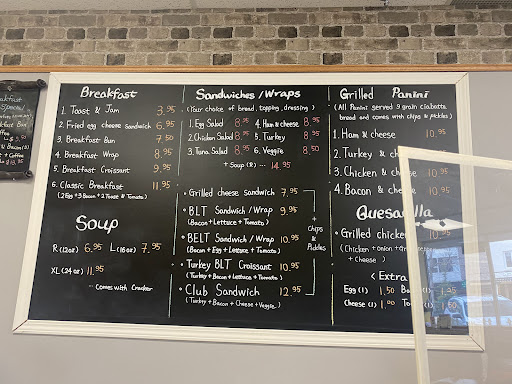 Breakfast
1. Toast & Jam 3.95
2. Fried egg cheese sandwich 6.95
3. Breakfast Bun 7.50
4. Breakfast Wrap 8.95
5. Breakfast Croissant 9.95
6. Classic Breakfast 11.95
(2 Egg + 3 Bacon + 2 Toast + Tomato)
Soup
R (12oz) 6.95 L (16oz) 7.95
XL (24oz) 11.95
... Comes with Cracker
Sandwiches / Wraps
(Your choice of bread, topping, dressing)
1. Egg Salad 8.35 4. Ham & cheese 8.95
2. Chicken Salad 5. Turkey 8.95
3. Tuna Salad 6. Veggie 8.50
+ Soup (R) ... 14.95
• Grilled cheese sandwich 7.95
• BLT Sandwich / Wrap 9.95
(Bacon + Lettuce + Tomato)
• BELT Sandwich / Wrap 10.95
(Bacon + Egg + Lettuce + Tomato)
• Turkey BLT Croissant 10.95
(Turkey + Bacon + Lettuce + Tomato)
• Club Sandwich 12.95
(Turkey + Bacon + Cheese + Veggie)
+ Chips & Pickles
Grilled Panini
(All Panini served 9 grain ciabatta
bread and comes with chips & pickles)
1. Ham & cheese 10.95
2. Turkey & 10.95
3. Chicken & 10.95
4. Bacon & 10.95
Quesadilla
• Grilled chicken
(Chicken + Onion +
+ Cheese)
< Extra
Egg (1) 1.50
Cheese (1) 1.00